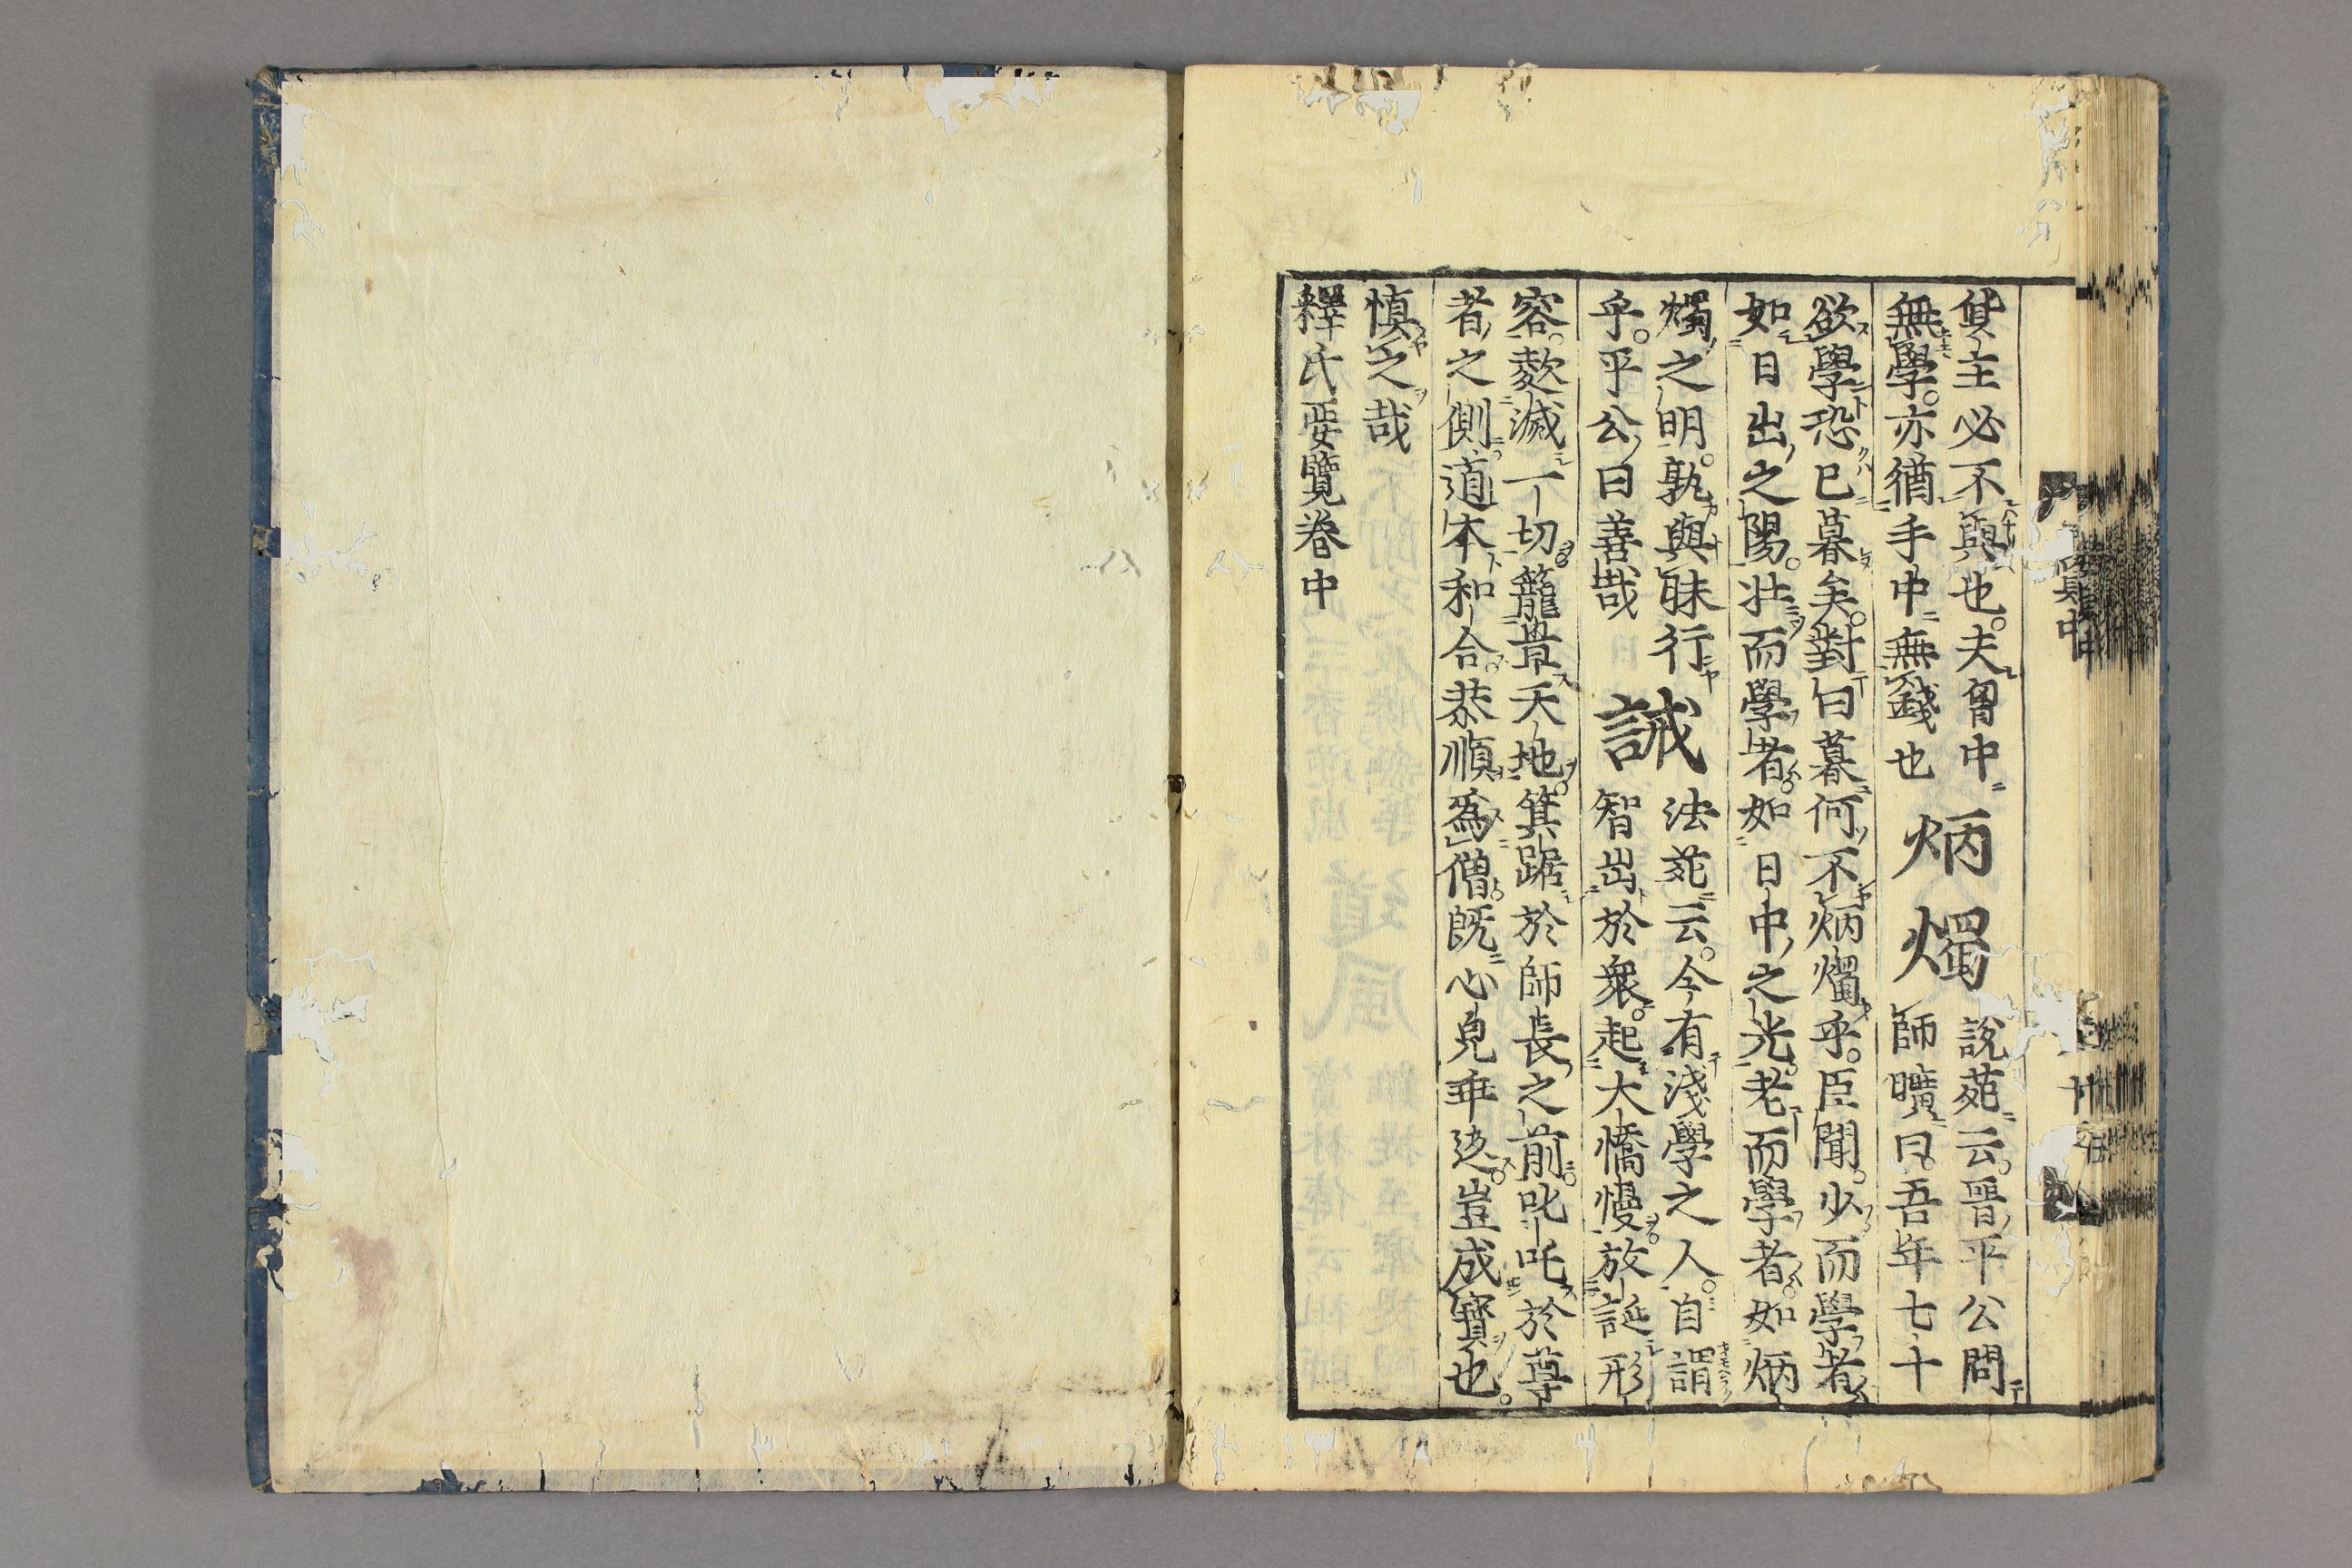 貸主必不與也。夫胷中
無學。亦猶手中無錢也
炳燭
說苑云。晋平公問
師曠曰吾年七十
欲學恐已暮矣。對曰暮何不炳燭乎。臣聞。少而學者
如日出之陽。壯而學者。如日中之光。老而學者。如炳
燭之明。孰與昧行
乎。平公曰善哉
誡
法苑云。今有淺學之人。自謂
智出於衆。起大憍慢。放誕形
容。滅一切。籠罩天地。箕踞於師長之前。叱吒於尊
者之側。道本和合。恭順爲僧。既心皃乖返。豈成寶也。
慎之哉
釋氏要覽卷中
覽中